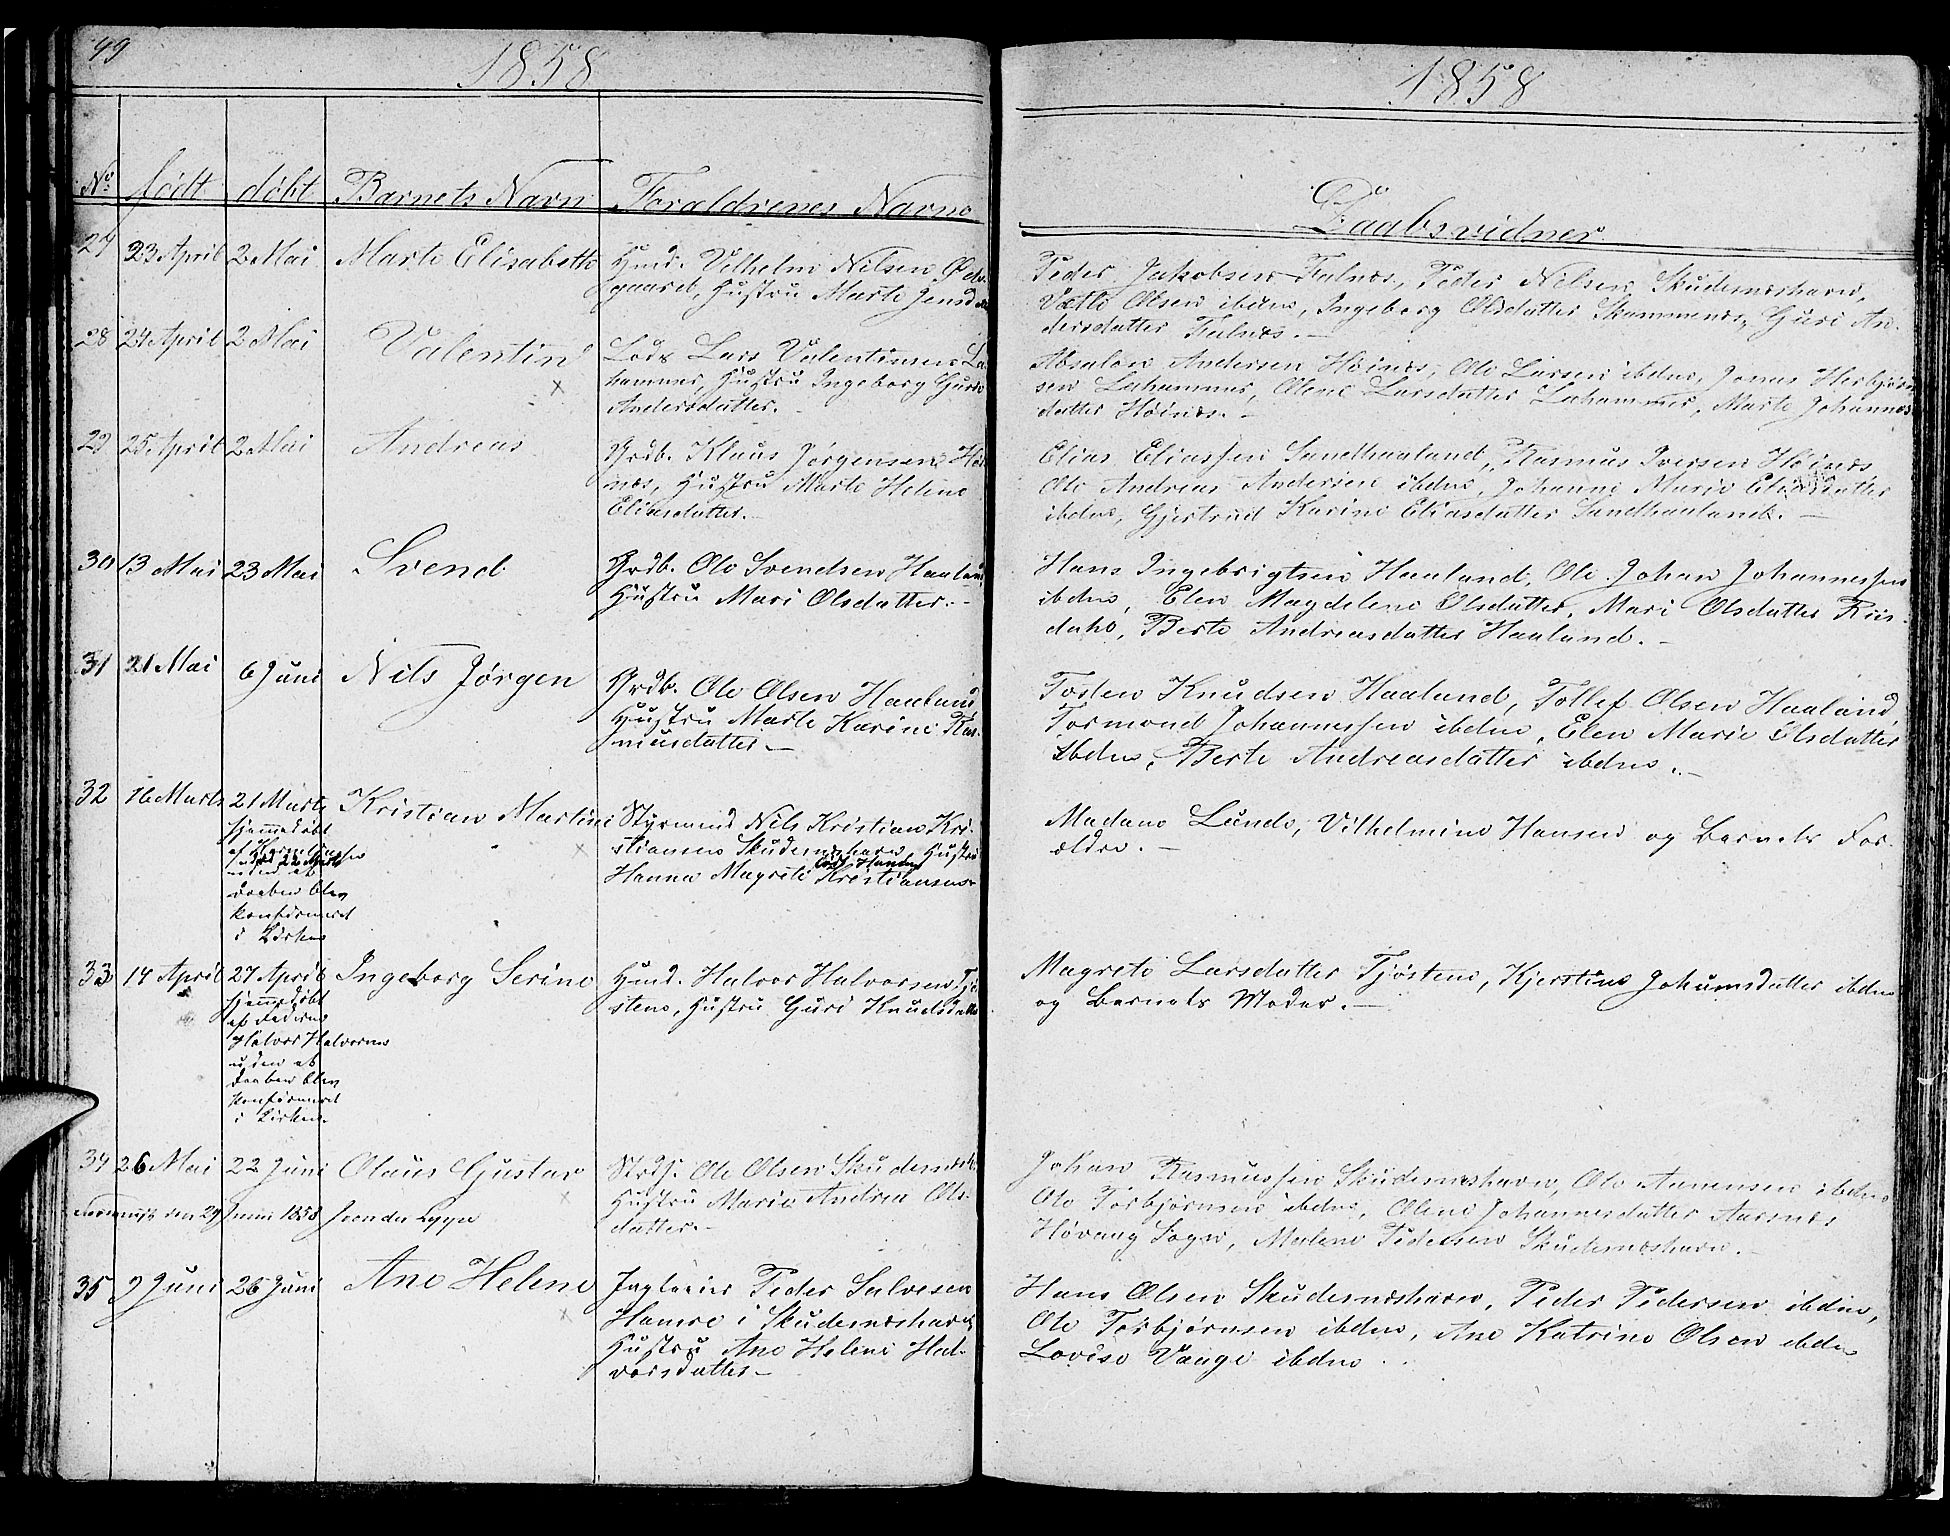 99
1858
No. født døbt Barnets Navn Forældrenes Navne
27 23 April 2 Mai Marte Elisabeth Huusm. Vilhelm Nilsen Øde-
gaard, Hustru Marte Jensd.
28 24 April 2 Mai Valentin Lods Lars Valentinsen La-
hammer, Hustru Ingeborg Guri
Andersdatter.
29 25 April 2 Mai Andreas Grdb. Klaus Jørgensen Høi-
næs, Hustru Marte Helene
Eliasdatter.
30 13 Mai 23 Mai Svend Grdb. Ole Svendsen Haaland
Hustru Mari Olsdatter.-
31 21 Mai 6 Juni Nils Jørgen Grdb. Ole Olsen Haaland
Hustru Marte Karine Ras-
musdatter.-
32 16 Marts 21 Marts Kristian Martin Styrmand Nils Kristian Kri-
hjemmedøbt
stiansen Skudesneshavn Hustru
Hanna Magrete Kristiansen.
uden at
Daaben blev
konfirmeret
i Kirken
33 14 April 27 April Ingeborg Serine Husmd. Halvor Halvorsen Tjø-
hjemmedøbt
af Faderen
stene, Hustru Guri Knudsdatter
Halvor Halvorsen
uden at
Daaben blev
konfirmeret
i Kirken.
34 26 Mai 22 Juni Olaus Gustav Ole Olsen Skudesnæsh.
Hustru Marie Andrea Ols-
den 29 Juni 1858
datter.-
35 9 Juni 26 Juni Ane Helene Jagteeier Peder Salvesen
Hamre i Skudesnæshavn
Hustru Ane Helene Hal-
vorsdatter.-
1858
Daabsvidner.
Peder Jakobsen Falnæs, Peder Nilsen Skudesnæshavn,
Olsen ibdm, Ingeborg Olsdatter Guri An-
dersdatter Falnæs.-
Absalon Andersen Høinæs, Ole Larsen ibdm, Jonas Herbjørn-
sen Lahammer, Olene Larsdatter Lahammer, Marte Johannes-
datter Høinæs.-
Elias Eliassen Sandhaaland, Rasmus Iversen Høinæs,
Ole Andreas Andersen ibdm, Johanne Marie Eliasdatter
ibdm, Gjertrud Karine Eliasdatter Sandhaaland.-
Hans Ingebrigtsen Haaland, Ole Johan Johannessen
ibdm, Elen Magdelene Olsdatter, Mari Olsdatter Riis-
dahl, Berte Andreasdatter Haaland.-
Tosten Knudsen Haaland, Tollef Olsen Haaland,
Tormond Johannessen ibdm, Elen Marie Olsdatter
ibdm, Berte Andreasdatter ibdm.-
Madame Lunde, Vilhelmine Hansen og Barnets For-
ældre.-
Magrete Larsdatter Tjøstene, Kjerstine Johansdatter ibdm
og Barnets Moder.-
Johan Rasmussen Skudesnæshavn, Ole Aanensen ibdm
Ole Torbjørnsen ibdm, Olene Johannesdatter Aarsnæs
Høvaag Sogn, Malene Pedersen Skudesnæshavn.-
Hans Olsen Skudesnæshavn, Peder Pedersen ibdm,
Ole Torbjørnsen ibdm, Ane Katrine Olsen ibdm
Lovise Vaage ibdm.